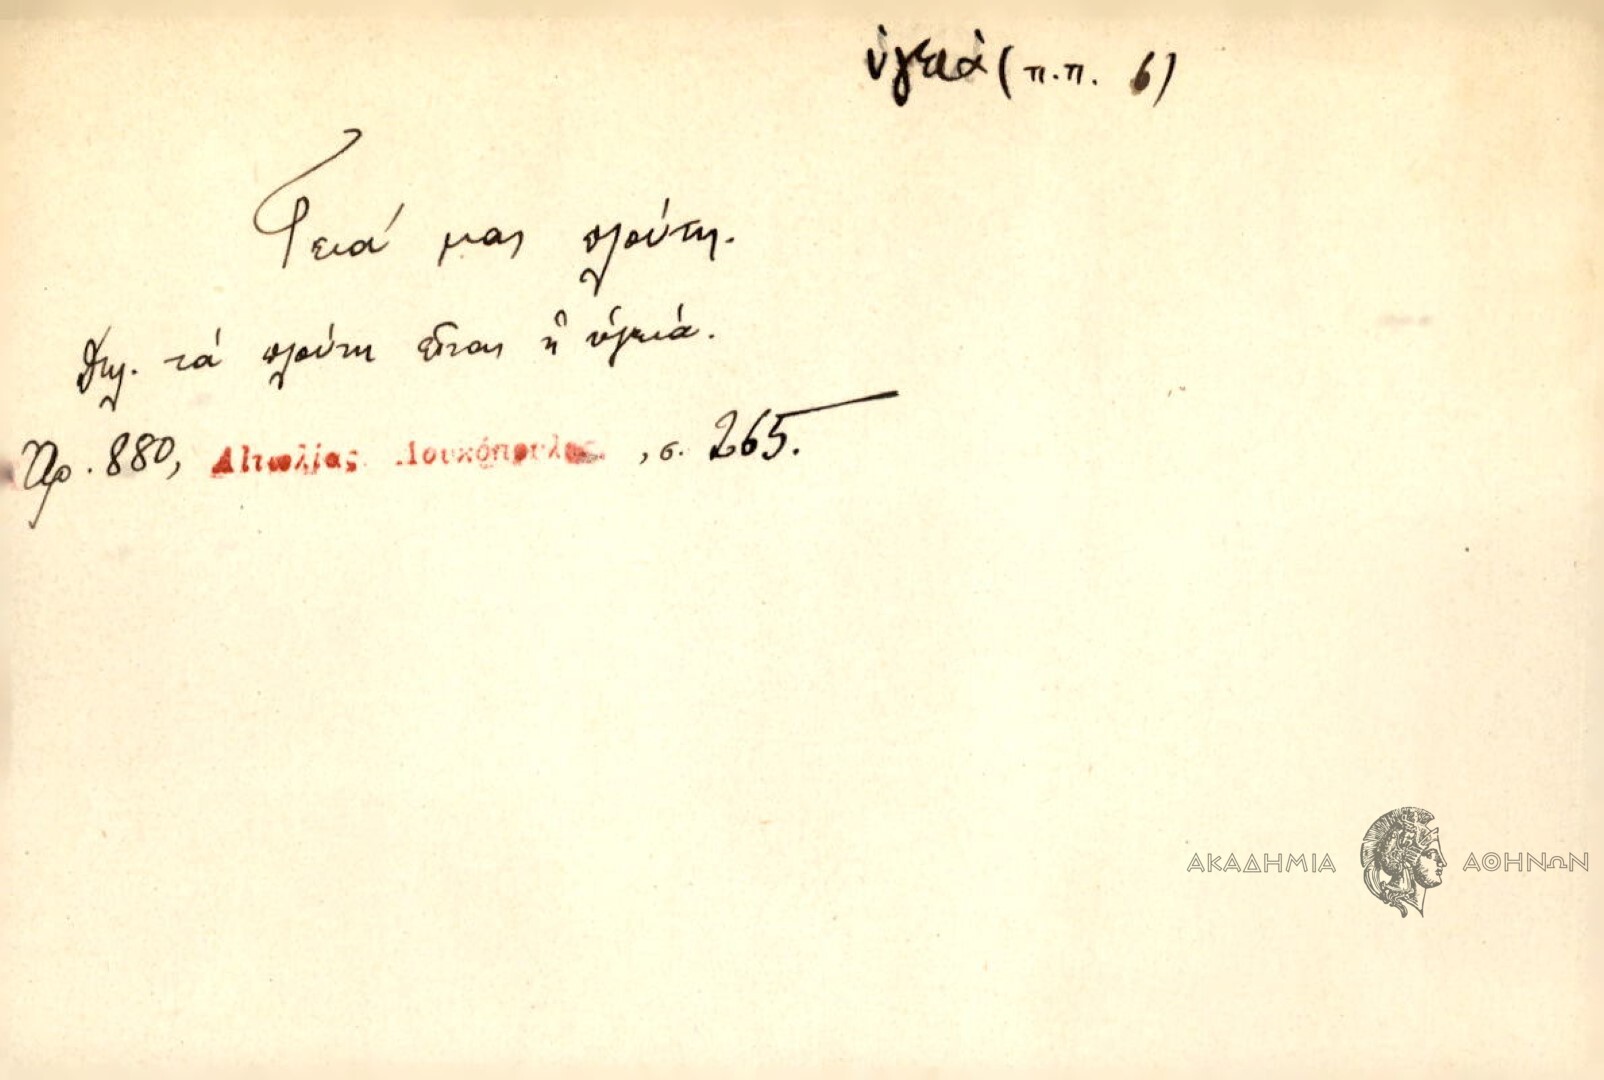 ὑγειὰ (π.π. 6)
Γειά μας πλούτη.
Δηλ. τά πλούτη εἶναι ἡ ὑγειά.
Ἀρ. 880, Αἰτωλίας Λουκόπουλος, σ. 265.
ΑΚΑΔΗΜΙΑ ΑΘΗΝΩΝ